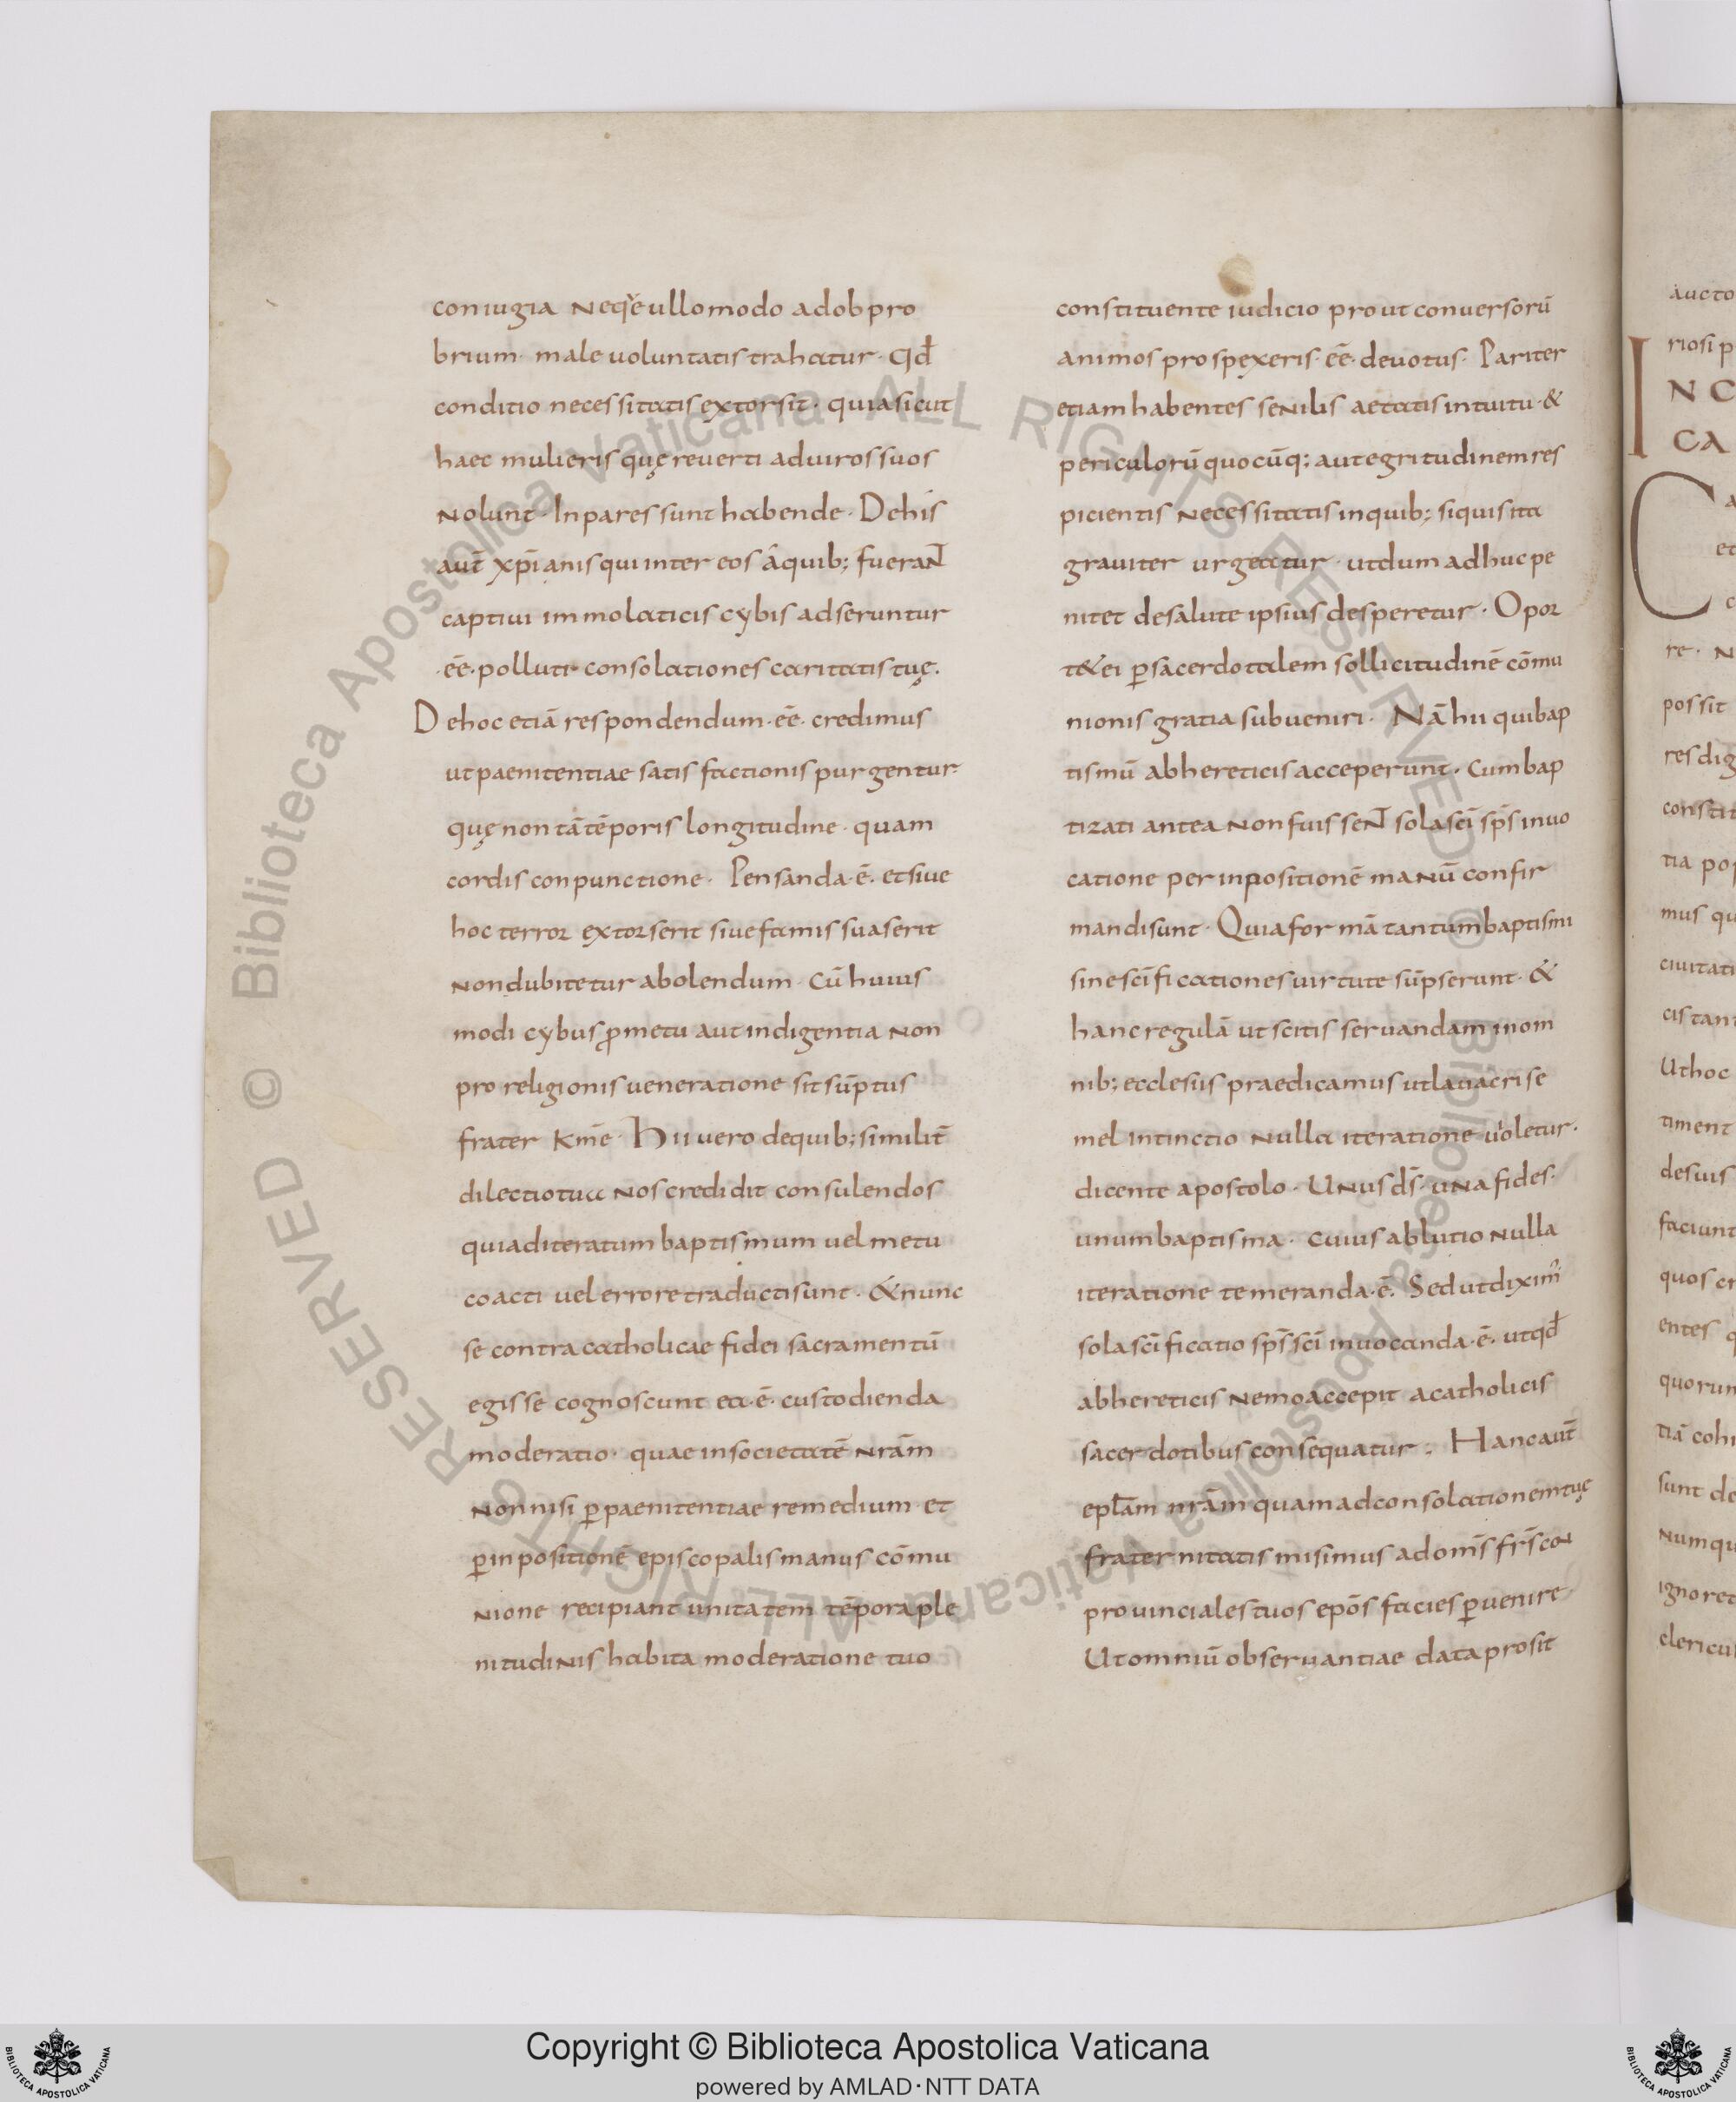 coniugia neq; ullo modo ad obpro
brium· male uoluntatis trahatur· qd̄
conditio necessitatis extorsit· quia sicut
haec mulieris quę reuerti ad uiros suos
nolunt· Inpares sunt habende· De his
aut̄ xp̄ianis qui inter eos á quib; fueraN̄
captiui immolaticis cybis adseruntur
·ēē· polluti consolationes caritatis tuę.
De hoc etiā respondendum·ēē· credimus
ut paenitentiae satisfactionis purgentur·
quę non tā tēporis longitudine· quam
cordis conpunctione· Pensanda·ē· et siue
hoc terror extorserit siue famis suaserit
non dubitetur abolendum· Cū huius
modi cybus ꝓ metu aut indigentia non
pro religionis ueneratione sit sūptus
frater km̄e· Hii uero de quib; similit̄
dilectio tua nos credidit consulendos
qui ad iteratum baptismum uel metu
coacti uel errore traducti sunt· & nunc
se contra catholicae fidei sacramentū
egisse cognoscunt ea·ē· custodienda
moderatio· quae in societatē nrām
non nisi ꝑ paenitentiae remedium et
ꝑ inpositionē episcopalis manus cōmu
nione recipiant unitatem tēpora ple
nitudinis habita moderatione tuo
constituente iudicio prout conuersorū
animos prospexeris·ēē· deuotus· Pariter
etiam habentes senilis aetatis intuitu· &
periculorū quocūq; aut egritudinem res
picientis necessitatis in quib; si quis ita
grauiter urgeatur· ut dum adhuc pe
nitet de salute ipsius desperetur· Opor
t& ei ꝑ sacerdotalem sollicitudinē cōmu
nionis gratia subueniri· Nā hii qui bap
tismū ab hereticis acceperunt· Cum bap
tizati antea non fuisseN̄ sola sc̄i sp̄s inuo
catione per inpositionē manū confir
mandi sunt· Quia formā tantum baptismi
sine sc̄ificationes uirtute sūpserunt· &
hanc regulā ut scitis seruandam in om
nib; ecclesiis praedicamus ut lauacri se
mel intinctio nulla iteratione uioletur·
dicente apostolo· Unus ds̄· una fides·
unum baptisma· cuius ablutio nulla
iteratione temeranda·ē· Sed ut diximꝰ
sola sc̄ificatio sp̄s sc̄i inuocanda·ē· ut qd̄
ab hereticis nemo accepit a catholicis
sacerdotibus consequatur; Hanc aut̄
epl̄am nrām quam ad consolationem tuę
fraternitatis misimus ad om̄s fr̄s con
prouinciales tuos epōs facies ꝑuenire
Ut omniū obseruantiae data prosit
aucto
riosi p
INC
CA
re· N
possit
res dig
constit
tia pos
mus qu
ciuitati
cis tant
Ut hoc
timent
de suis
faciunt
quos cr
entes q
quorun
tiā cohi
sunt de
numqu
ignoret
clericus
Copyright © Biblioteca Apostolica Vaticana
powered by AMLAD·NTT DATA
© Biblioteca Apostolica Vaticana ALL RIGHTS RESERVED